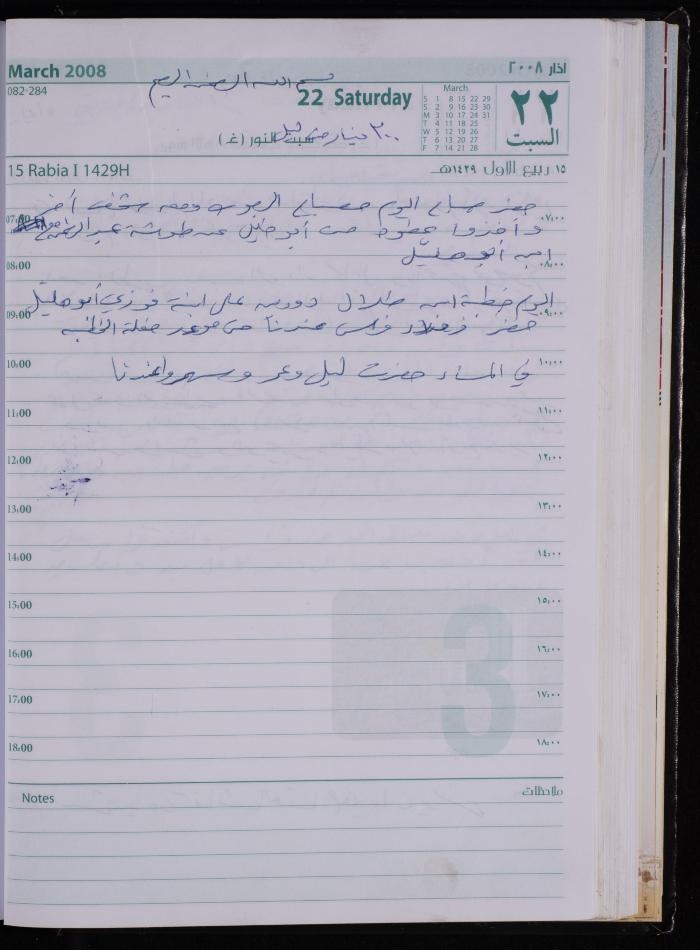 March 2008
آذار ٢٠٠٨
بسم الله الرحمن الرحيم
082-284
22 Saturday
March
S 1 8 15 22 29
S 2 9 16 23 30
M 3 10 17 24 31
T 4 11 18 25
W 5 12 19 26
T 6 13 20 27
F 7 14 21 28
٢٢
السبت
٢٠٠ دينار من
سبت النور (غ)
15 Rabia I 1429H
١٥ ربيع الاول ١٤٢٩هـ
حضر صباح اليوم مصباح ومعه شخص آخر
07:00
٠٧:٠٠
وأخذوا من أبو خليل عن طوشة
ابنه أبو خليل
08:00
٠٨:٠٠
اليوم خطبة ابن طلال دورسه على ابنة فوزي أبو خليل
09:00
٠٩:٠٠
حضر عندنا من حفلة الخطبه
في المساء حضرت ليلى وعمر وسهروا عندنا
10:00
١٠:٠٠
11:00
١١:٠٠
12:00
١٢:٠٠
13:00
١٣:٠٠
14:00
١٤:٠٠
15:00
١٥:٠٠
3
16:00
١٦:٠٠
17:00
١٧:٠٠
18:00
١٨:٠٠
Notes
ملاحظات